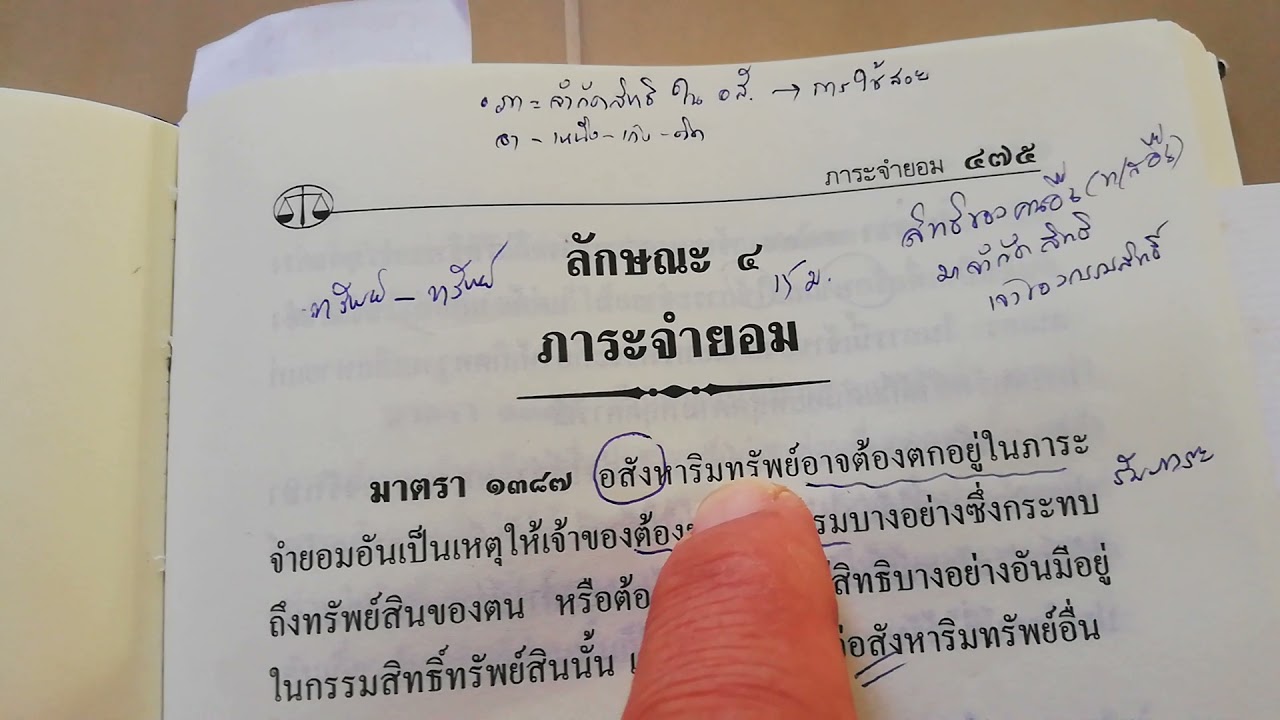 ภา = จำกัดสิทธิ ใน อสั. → การใช้สอย
ภาระจำยอม ๔๗๕
สิทธิของคนอื่น
มาจำกัดสิทธิ
เจ้าของกรรมสิทธิ์
ลักษณะ ๔
ทรัพย์ - ทรัพย์
ภาระจำยอม
มาตรา ๑๓๘๗ อสังหาริมทรัพย์อาจต้องตกอยู่ในภาระ
รับภาระ
จำยอมอันเป็นเหตุให้เจ้าของต้อง รมบางอย่างซึ่งกระทบ
ถึงทรัพย์สินของตน หรือต้อ สิทธิบางอย่างอันมีอยู่
ในกรรมสิทธิ์ทรัพย์สินนั้น เ อสังหาริมทรัพย์อื่น